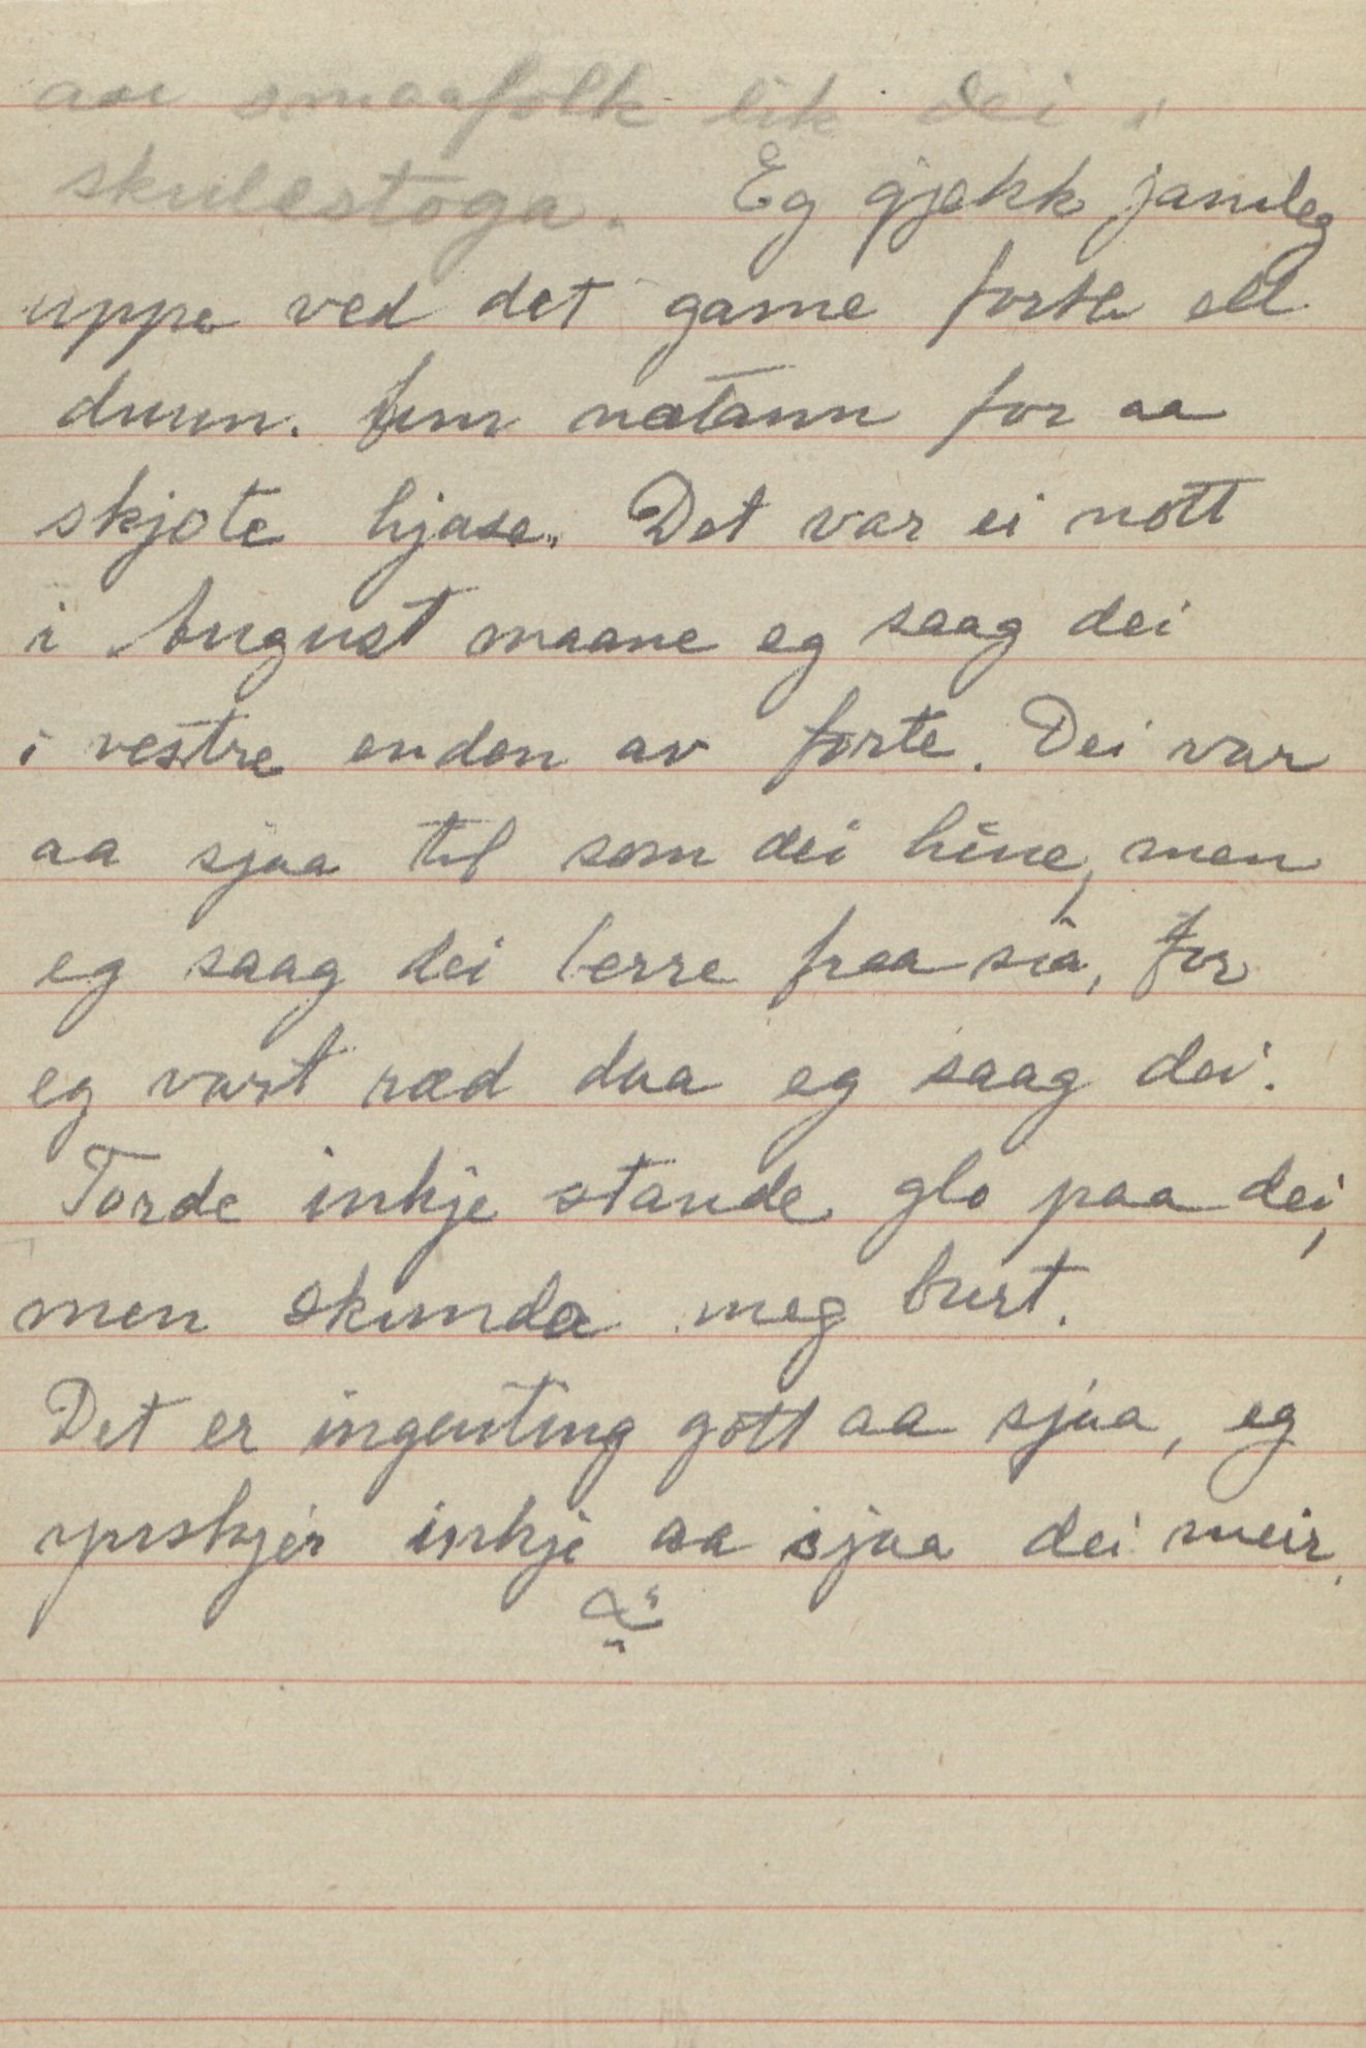 av smaafolk lik dei i
skulestoga. Eg gjekk jamleg
uppe ved det game forte ell
duun. um nætann for aa
skjote hjase. Det var ei nott
i August maane eg saag dei
i vestre enden av forte. Dei var
aa sjaa til som dei hine, men
eg saag dei berre fraa sia, for
eg vart ræd daa eg saag dei.
Torde inkje stande glo paa dei,
men skunda meg burt.
Det er ingenting gott aa sjaa, eg
ynskjer inkje aa sjaa dei meir.